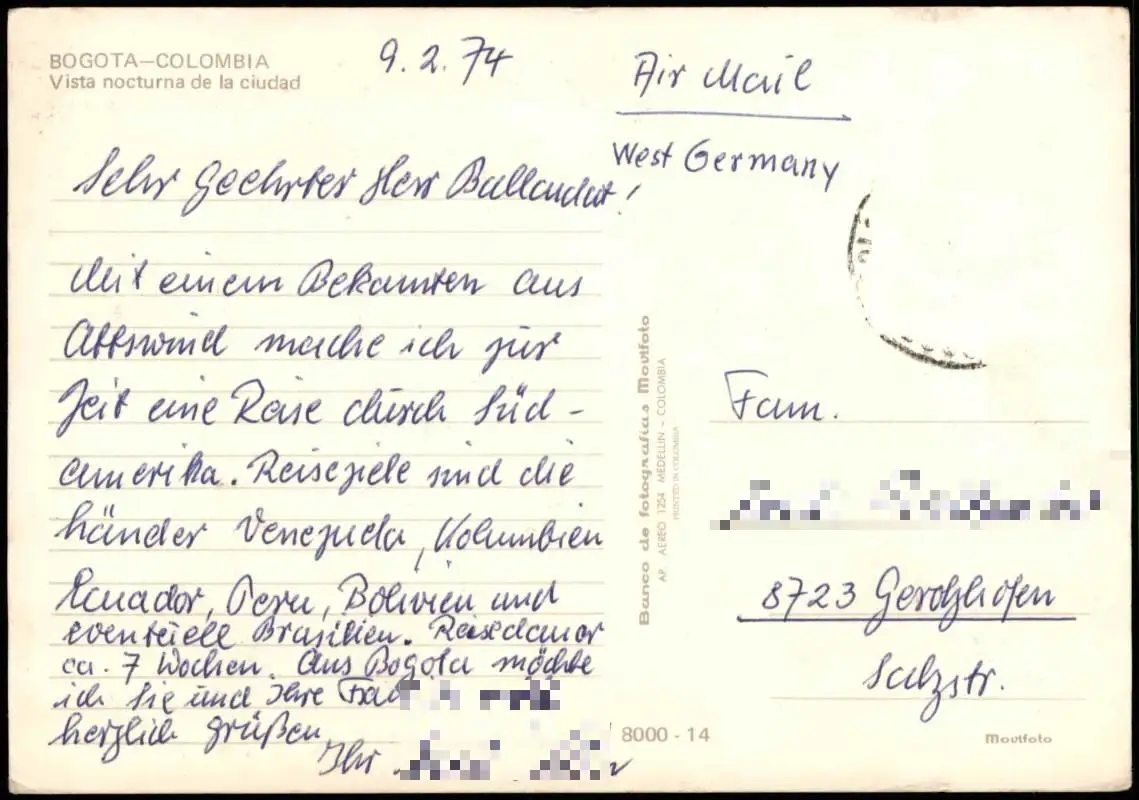 BOGOTA—COLOMBIA
Vista nocturna de la ciudad
9. 2. 74
Sehr geehrter Herr Ballandat!
Mit einem Bekannten aus
machе ich zur
Zeit eine Reise durch Süd-
amerika. Reiseziele sind die
Länder Venezuela, Kolumbien
Ecuador, Peru, Bolivien und
eventuell Brasilien. Reisedauer
ca. 7 Wochen. Aus Bogota möchte
ich Sie und Ihre Frau
herzlich grüßen
Ihr
Air Mail
West Germany
Banco de fotografias Movifoto
AP. AEREO 1254 MEDELLIN - COLOMBIA
PRINTED IN COLOMBIA
Fam.
8723 Gerolzhofen
Salzstr.
8000 - 14
Movifoto